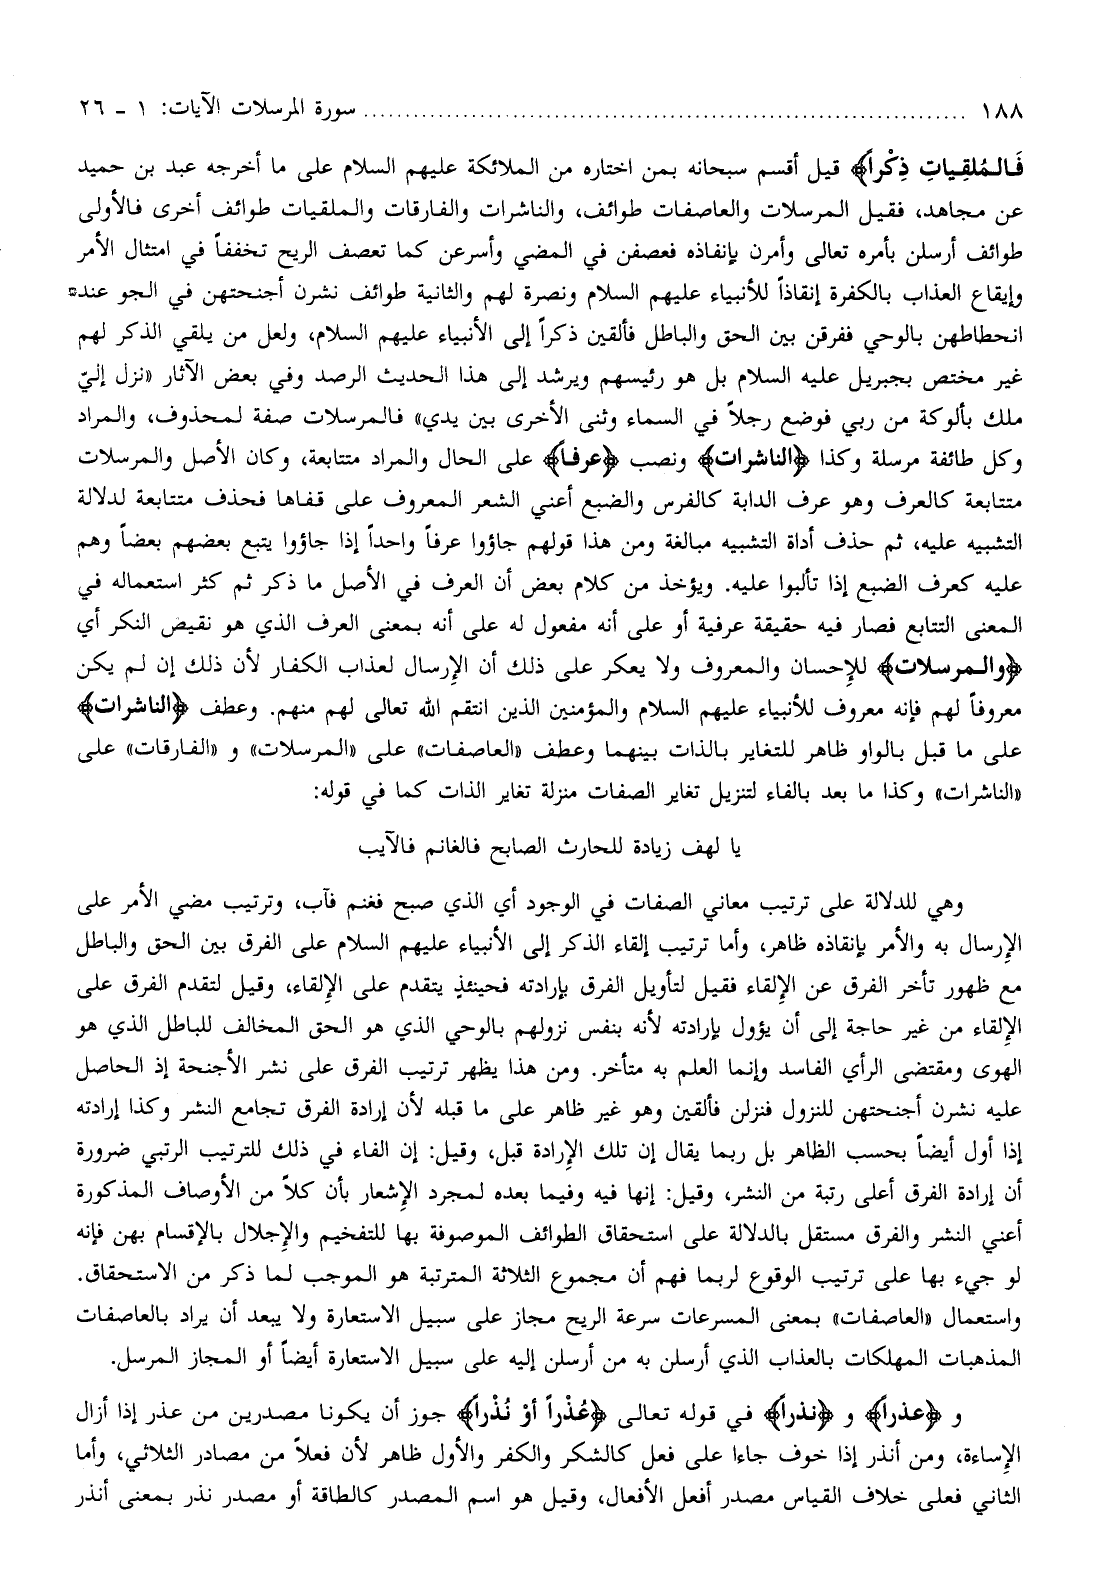 ١٨٨ ........................................................................ سورة المرسلات الآيات: ١ - ٢٦
فَالمُلقِياتِ ذِكْراً﴾ قيل أقسم سبحانه بمن اختاره من الملائكة عليهم السلام على ما أخرجه عبد بن حميد
عن مجاهد، فقيل المرسلات والعاصفات طوائف، والناشرات والفارقات والملقيات طوائف أخرى فالأولى
طوائف أرسلن بأمره تعالى وأمرن بإنفاذه فعصفن في المضي وأسرعن كما تعصف الريح تخففاً في امتثال الأمر
وإيقاع العذاب بالكفرة إنقاذاً للأنبياء عليهم السلام ونصرة لهم والثانية طوائف نشرن أجنحتهن في الجو عند
انحطاطهن بالوحي ففرقن بين الحق والباطل فألقين ذكراً إلى الأنبياء عليهم السلام، ولعل من يلقي الذكر لهم
غير مختص بجبريل عليه السلام بل هو رئيسهم ويرشد إلى هذا الحديث الرصد وفي بعض الآثار «نزل إليّ
ملك بألوكة من ربي فوضع رجلاً في السماء وثنى الأخرى بين يدي» فالمرسلات صفة لمحذوف، والمراد
وكل طائفة مرسلة وكذا ﴿الناشرات﴾ ونصب ﴿عرفاً﴾ على الحال والمراد متتابعة، وكان الأصل والمرسلات
متتابعة كالعرف وهو عرف الدابة كالفرس والضبع أعني الشعر المعروف على قفاها فحذف متتابعة لدلالة
التشبيه عليه، ثم حذف أداة التشبيه مبالغة ومن هذا قولهم جاؤوا عرفاً واحداً إذا جاؤوا يتبع بعضهم بعضاً وهم
عليه كعرف الضبع إذا تألبوا عليه. ويؤخذ من كلام بعض أن العرف في الأصل ما ذكر ثم كثر استعماله في
المعنى التتابع فصار فيه حقيقة عرفية أو على أنه مفعول له على أنه بمعنى العرف الذي هو نقيض النكر أي
﴿والمرسلات﴾ للإحسان والمعروف ولا يعكر على ذلك أن الإرسال لعذاب الكفار لأن ذلك إن لم يكن
معروفاً لهم فإنه معروف للأنبياء عليهم السلام والمؤمنين الذين انتقم الله تعالى لهم منهم. وعطف ﴿الناشرات﴾
على ما قبل بالواو ظاهر للتغاير بالذات بينهما وعطف «العاصفات» على «المرسلات» و «الفارقات» على
«الناشرات» وكذا ما بعد بالفاء لتنزيل تغاير الصفات منزلة تغاير الذات كما في قوله:
يا لهف زيادة للحارث الصابح فالغانم فالآيب
وهي للدلالة على ترتيب معاني الصفات في الوجود أي الذي صبح فغنم فآب، وترتيب مضي الأمر على
الإرسال به والأمر بإنقاذه ظاهر، وأما ترتيب إلقاء الذكر إلى الأنبياء عليهم السلام على الفرق بين الحق والباطل
مع ظهور تأخر الفرق عن الإلقاء فقيل لتأويل الفرق بإرادته فحينئذٍ يتقدم على الإلقاء، وقيل لتقدم الفرق على
الإلقاء من غير حاجة إلى أن يؤول بإرادته لأنه بنفس نزولهم بالوحي الذي هو الحق المخالف للباطل الذي هو
الهوى ومقتضى الرأي الفاسد وإنما العلم به متأخر. ومن هذا يظهر ترتيب الفرق على نشر الأجنحة إذ الحاصل
عليه نشرن أجنحتهن للنزول فنزلن فألقين وهو غير ظاهر على ما قبله لأن إرادة الفرق تجامع النشر وكذا إرادته
إذا أول أيضاً بحسب الظاهر بل ربما يقال إن تلك الإرادة قبل، وقيل: إن الفاء في ذلك للترتيب الرتبي ضرورة
أن إرادة الفرق أعلى رتبة من النشر، وقيل: إنها فيه وفيما بعده لمجرد الإشعار بأن كلاً من الأوصاف المذكورة
أعني النشر والفرق مستقل بالدلالة على استحقاق الطوائف الموصوفة بها للتفخيم والإجلال بالإقسام بهن فإنه
لو جيء بها على ترتيب الوقوع لربما فهم أن مجموع الثلاثة المترتبة هو الموجب لما ذكر من الاستحقاق.
واستعمال «العاصفات» بمعنى المسرعات سرعة الريح مجاز على سبيل الاستعارة ولا يبعد أن يراد بالعاصفات
المذهبات المهلكات بالعذاب الذي أرسلن به من أرسلن إليه على سبيل الاستعارة أيضاً أو المجاز المرسل.
و ﴿عذراً﴾ و ﴿نذراً﴾ في قوله تعالى ﴿عُذْراً أوْ نُذْراً﴾ جوز أن يكونا مصدرين من عذر إذا أزال
الإساءة، ومن أنذر إذا خوف جاءا على فعل كالشكر والكفر والأول ظاهر لأن فعلاً من مصادر الثلاثي، وأما
الثاني فعلى خلاف القياس مصدر أفعل الأفعال، وقيل هو اسم المصدر كالطاقة أو مصدر نذر بمعنى أنذر